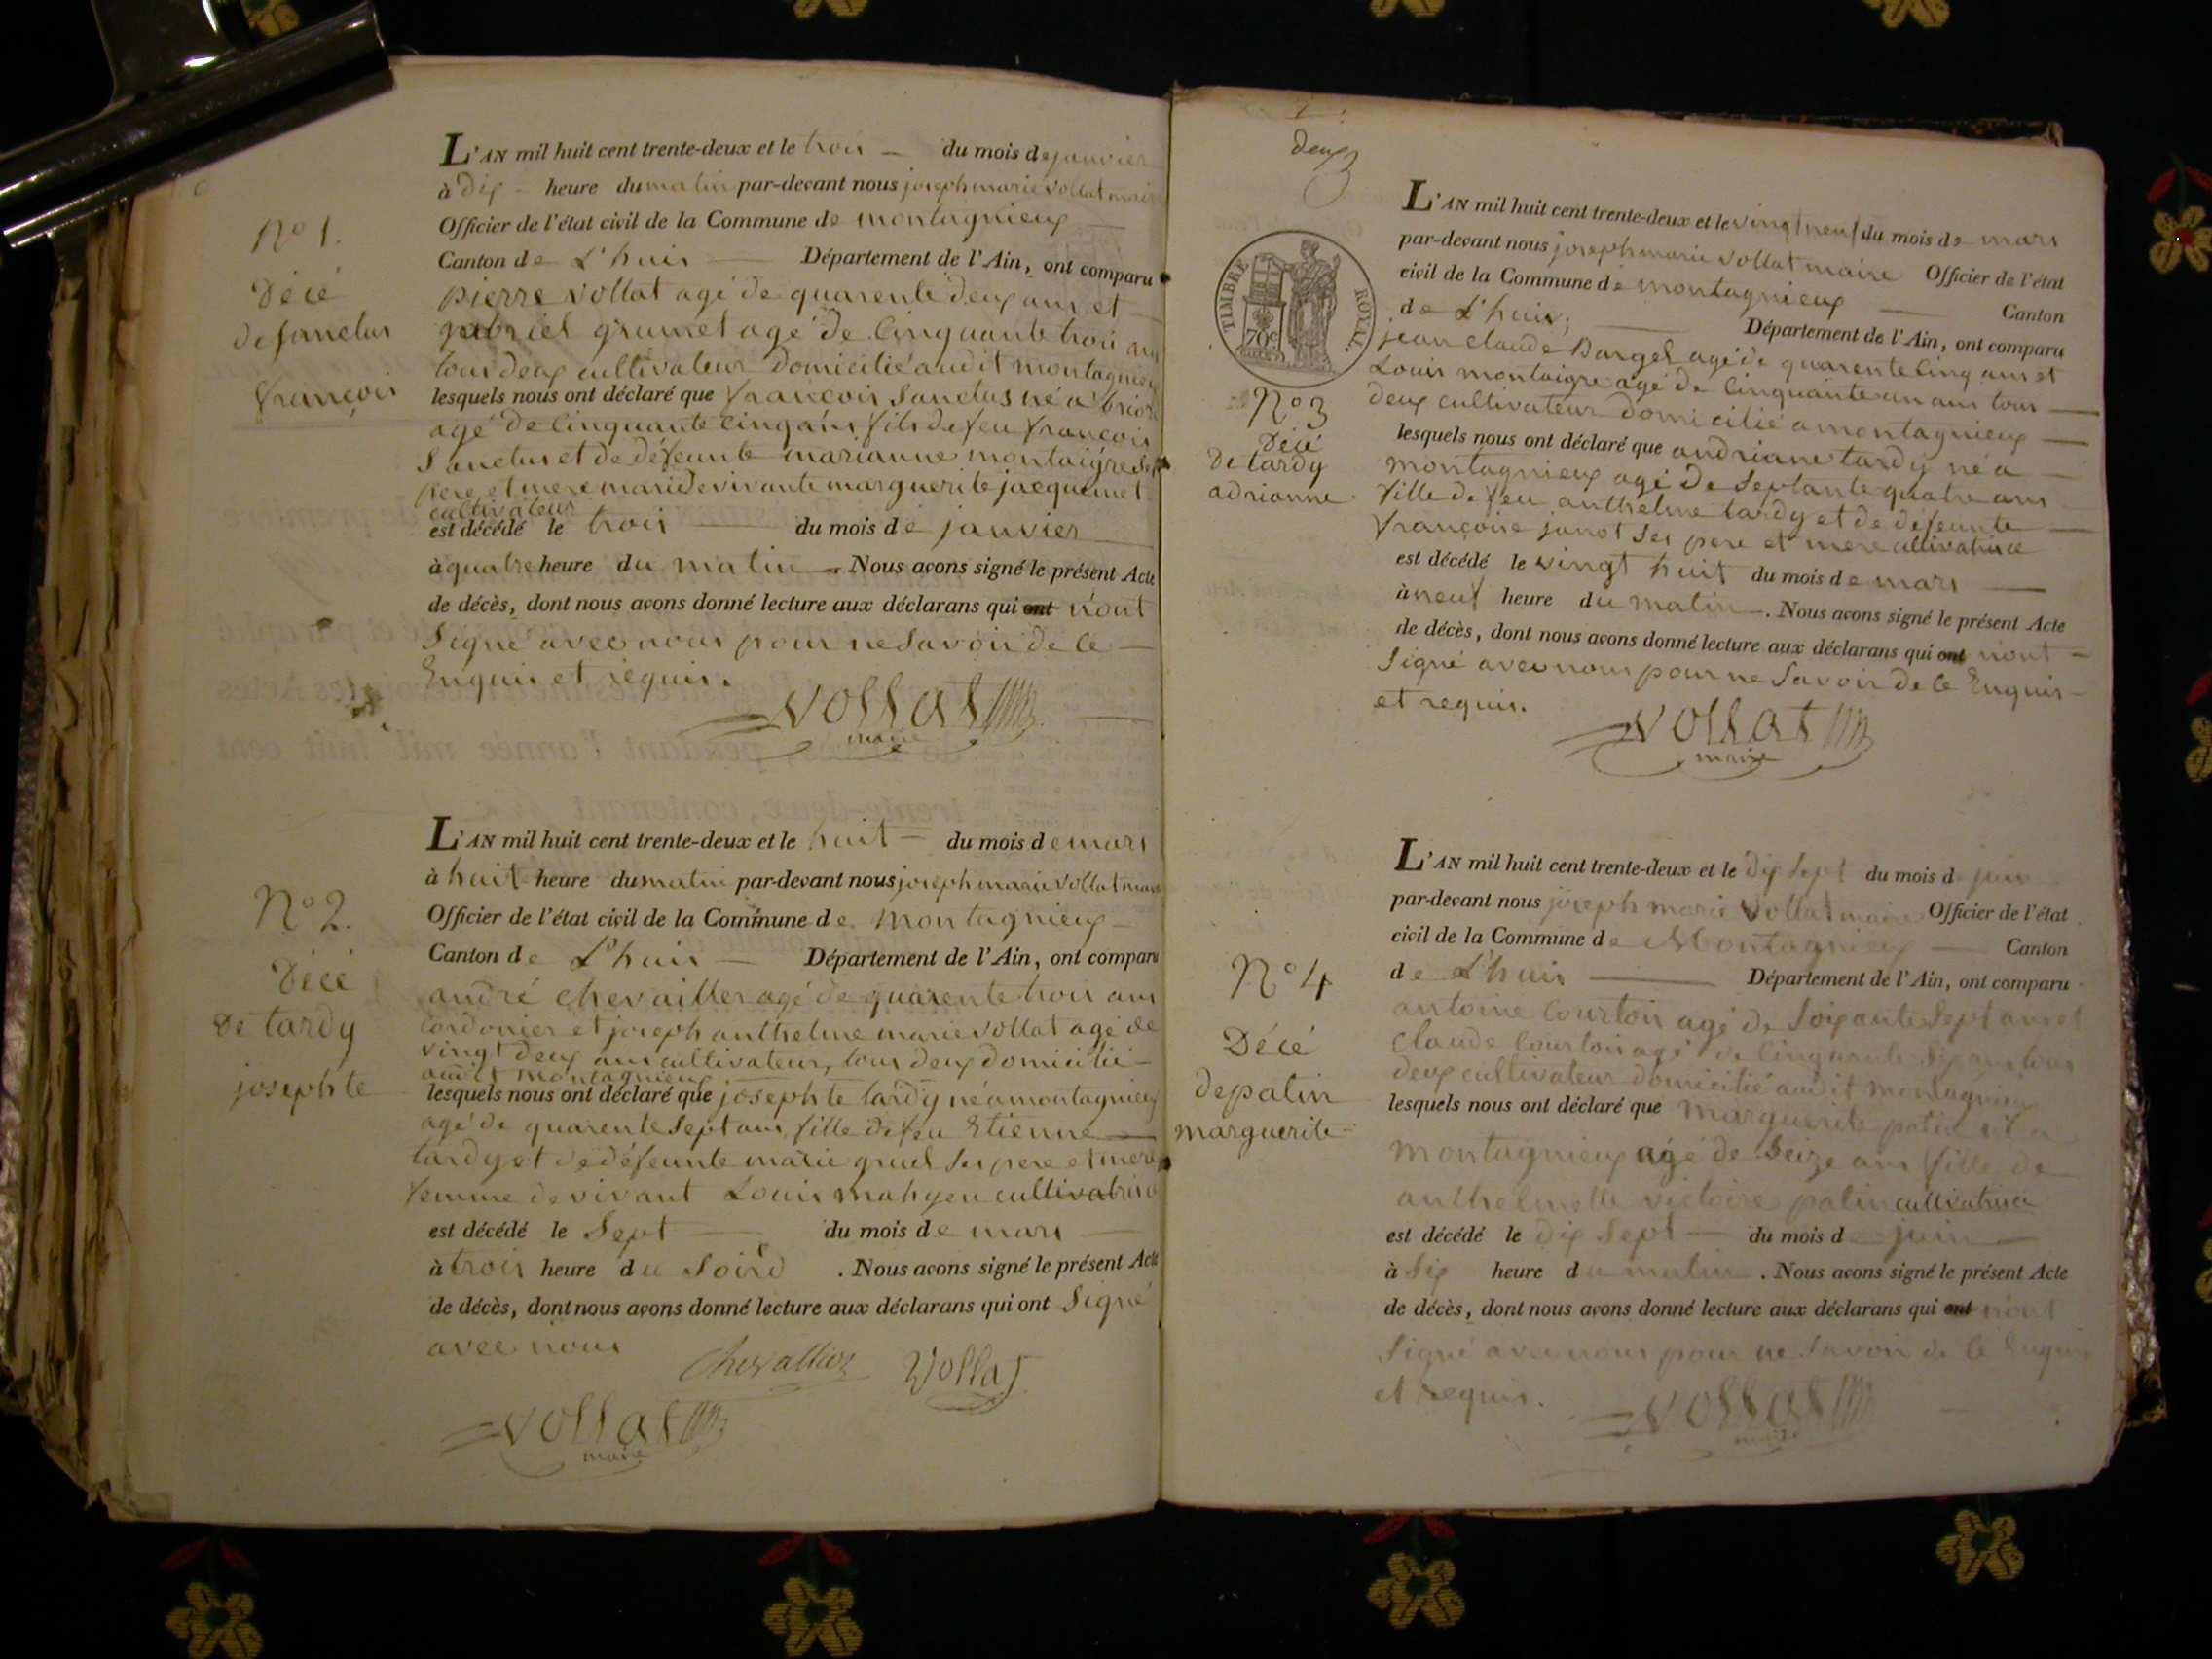 N° 1.
Décé
de sanctus
françois
L'AN mil huit cent trente-deux et le trois — du mois de janvier
à dix - heure du matin par-devant nous joseph marie vollat maire
Officier de l'état civil de la Commune de montagnieux
Canton de L'huis — Département de l'Ain, ont comparu
pierre vollat agé de quarente deux ans et
gabriel grumet agé de cinquante trois ans
tous deux cultivateur domicilié audit montagnieux
lesquels nous ont déclaré que françois Sanctus né a briord
agé de cinquante cinq ans fils de feu françois
Sanctus et de défeunte marianne montaigre ses
pere et mere marie de vivante marguerite jacquemet
cultivateur
est décédé le trois — du mois de janvier
à quatre heure du matin. Nous avons signé le présent Acte
de décès, dont nous avons donné lecture aux déclarans qui ont n'ont
Signé avec nous pour ne Savoir de ce —
Enquis et requis.
vollat
maire
N° 2.
Décé
de tardy
josephte
L'AN mil huit cent trente-deux et le huit — du mois de mars
à huit heure du matin par-devant nous joseph marie vollat maire
Officier de l'état civil de la Commune de montagnieux
Canton de L'huis — Département de l'Ain, ont comparu
andré chevailler agé de quarente trois ans
cordonier et joseph anthelme marie vollat agé de
vingt deux ans cultivateur, tous deux domicilié
audit montagnieux
lesquels nous ont déclaré que josephte tardy né a montagnieux
agé de quarente Sept ans, fille de feu Etienne —
tardy et de défeunte marie gruel Ses pere et mere
femme de vivant Louis mahyeu cultivatrice
est décédé le Sept — du mois de mars —
à trois heure du Soird . Nous avons signé le présent Acte
de décès, dont nous avons donné lecture aux déclarans qui ont Signé
avec nous
Chevallier Vollat
vollat
maire
deux
TIMBRE ROYAL
70c
N° 3
Décé
De tardy
adrianne
L'AN mil huit cent trente-deux et le vingt neuf du mois de mars
par-devant nous joseph marie vollat maire Officier de l'état
civil de la Commune de montagnieux — Canton
de L'huis; — Département de l'Ain, ont comparu
jean claude Bargel agé de quarente cinq ans et
Louis montaigre agé de cinquante un ans tous —
deux cultivateur domicilié a montagnieux —
lesquels nous ont déclaré que andrianne tardy né a
montagnieux agé de Septante quatre ans
fille de feu anthelme tardy et de défeunte —
françoise janot Ses pere et mere cultivatrice
est décédé le vingt huit du mois de mars —
à neuf heure du matin. Nous avons signé le présent Acte
de décès, dont nous avons donné lecture aux déclarans qui ont n'ont
Signé avec nous pour ne Savoir de ce Enquis
et requis.
vollat
maire
N° 4
Décé
de patin
marguerite
L'AN mil huit cent trente-deux et le dix Sept du mois de juin
par-devant nous joseph marie vollat maire Officier de l'état
civil de la Commune de Montagnieux — Canton
de L'huis — Département de l'Ain, ont comparu
antoine Courtois agé de Soixante Sept ans et
claude Courtois agé de cinquante Six ans tous
deux cultivateur domicilié audit montagnieux
lesquels nous ont déclaré que marguerite patin né a
montagnieux agé de Seize ans fille de
anthelmette victoire patin cultivatrice
est décédé le dix Sept — du mois de juin —
à Six heure du matin . Nous avons signé le présent Acte
de décès, dont nous avons donné lecture aux déclarans qui ont n'ont
Signé avec nous pour ne Savoir de ce Enquis
et requis.
vollat
maire